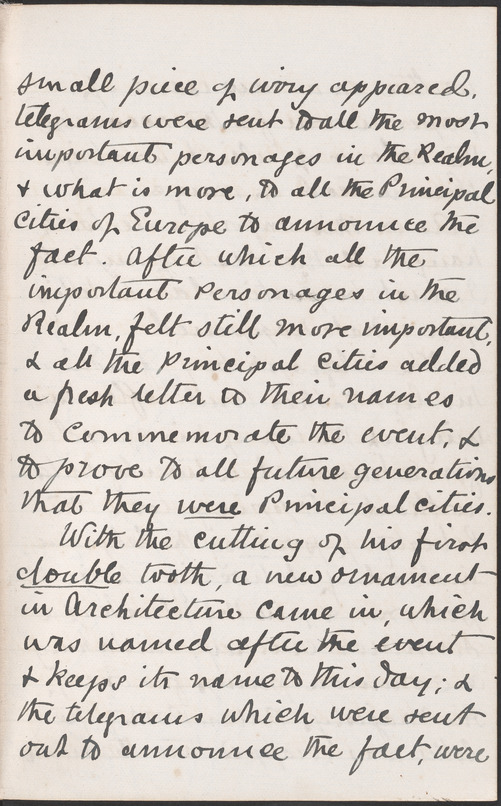 small piece of ivory appeared,
telegrams were sent to all the most
important personages in the Realm,
& what is more, to all the Principal
Cities of Europe to announce the
fact. After which all the
important Personages in the
Realm, felt still more important,
& all the Principal Cities added
a fresh letter to their names
to Commemorate the event, &
to prove to all future generations
that they were Principal cities.
With the cutting of his first
double tooth, a new ornament
in Architecture came in, which
was named after the event
& keeps its name to this day; &
the telegrams which were sent
out to announce the fact, were